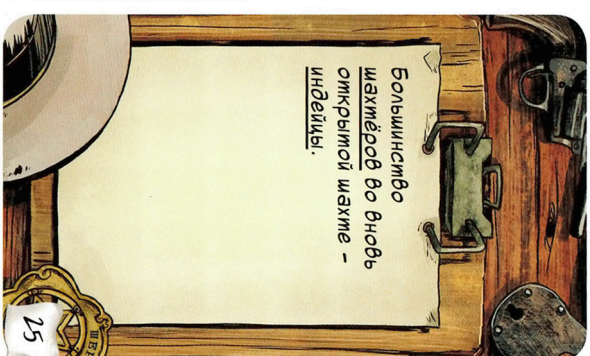 Большинство
шахтёров во вновь
открытой шахте –
индейцы.
25